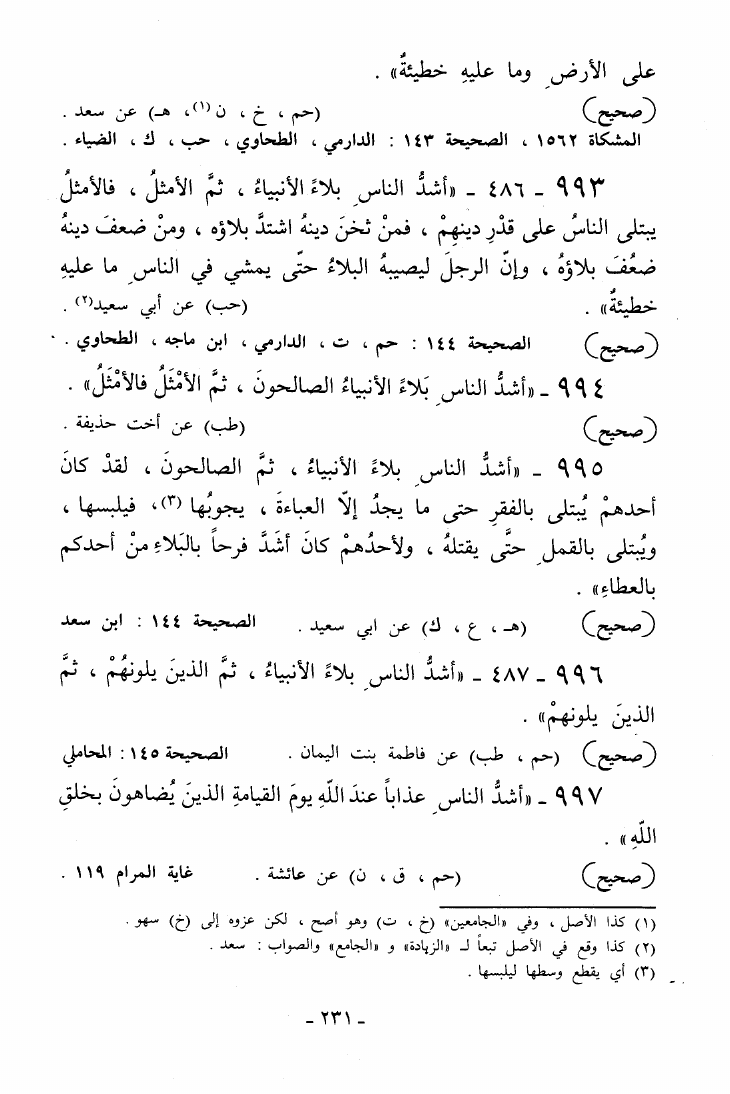 على الأرضِ وما عليهِ خطيئةٌ» .
(صحيح) (حم ، خ ، ن(١)، هـ) عن سعد .
المشكاة ١٥٦٢ ، الصحيحة ١٤٣ : الدارمي ، الطحاوي ، حب ، ك ، الضياء .
٩٩٣ ـ ٤٨٦ ـ «أشدُّ الناسِ بلاءً الأنبياءُ ، ثمَّ الأمثلُ ، فالأمثلُ
يبتلى الناسُ على قدْرِ دينهِمْ ، فمنْ ثخنَ دينهُ اشتدَّ بلاؤه ، ومنْ ضعفَ دينهُ
ضعُفَ بلاؤهُ ، وإنّ الرجلَ ليصيبهُ البلاءُ حتّى يمشي في الناسِ ما عليهِ
خطيئةٌ» . (حب) عن أبي سعيد(٢) .
(صحيح) الصحيحة ١٤٤ : حم ، ت ، الدارمي ، ابن ماجه ، الطحاوي .
٩٩٤ ـ «أشدُّ الناسِ بَلاءً الأنبياءُ الصالحونَ ، ثمَّ الأمْثَلُ فالأمْثَلُ» .
(صحيح) (طب) عن أخت حذيفة .
٩٩٥ ـ «أشدُّ الناسِ بلاءً الأنبياءُ ، ثمَّ الصالحونَ ، لقدْ كانَ
أحدهمْ يُبتلى بالفقرِ حتى ما يجدُ إلّا العباءةَ ، يجوبُها (٣)، فيلبسها ،
ويُبتلى بالقملِ حتَّى يقتلهُ ، ولأحدُهمْ كانَ أشَدَّ فرحاً بالبَلاءِ منْ أحدكم
بالعطاءِ» .
(صحيح) (هـ ، ع ، ك) عن ابي سعيد . الصحيحة ١٤٤ : ابن سعد
٩٩٦ ـ ٤٨٧ ـ «أشدُّ الناسِ بلاءً الأنبياءُ ، ثمَّ الذينَ يلونهُمْ ، ثمَّ
الذينَ يلونهمْ» .
(صحيح) (حم ، طب) عن فاطمة بنت اليمان . الصحيحة ١٤٥ : المحاملي
٩٩٧ ـ «أشدُّ الناسِ عذاباً عندَ اللّهِ يومَ القيامةِ الذينَ يُضاهونَ بخلقِ
اللّهِ» .
(صحيح) (حم ، ق ، ن) عن عائشة . غاية المرام ١١٩ .
(١) كذا الأصل ، وفي «الجامعين» (خ ، ت) وهو أصح ، لكن عزوه إلى (خ) سهو .
(٢) كذا وقع في الأصل تبعاً لـ «الزيادة» و «الجامع» والصواب : سعد .
(٣) أي يقطع وسطها ليلبسها .
ـ ٢٣١ ـ